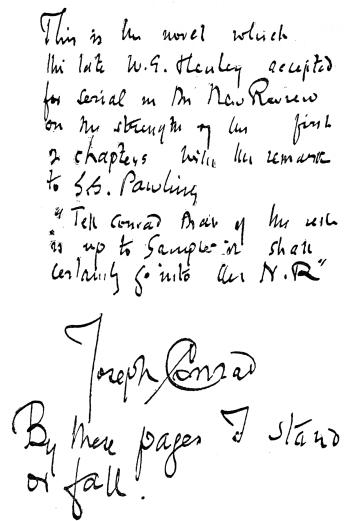 This is the novel which
the late W.E. Henley accepted
for serial in the New Review
on the strength of the first
2 chapters with the remark
to S.S. Pawling
"Tell Conrad that if the rest
"is up to Sample it shall
certainly go into the N.R"
Joseph Conrad
By these pages I stand
or fall.